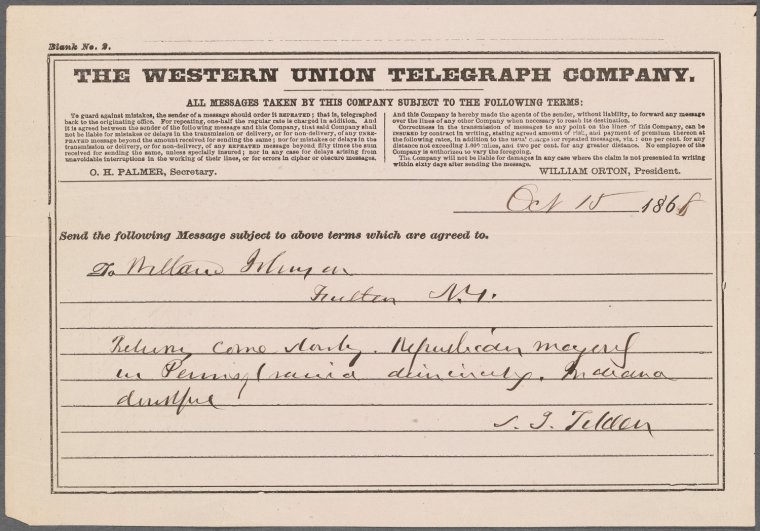 Blank No. 2.
THE WESTERN UNION TELEGRAPH COMPANY.
ALL MESSAGES TAKEN BY THIS COMPANY SUBJECT TO THE FOLLOWING TERMS:
To guard against mistakes, the sender of a message should order it REPEATED; that is, telegraphed
back to the originating office. For repeating, one-half the regular rate is charged in addition. And
it is agreed between the sender of the following message and this Company, that said Company shall
not be liable for mistakes or delays in the transmission or delivery, or for non-delivery, of any UNRE-
PEATED message beyond the amount received for sending the same; nor for mistakes or delays in the
transmission or delivery, or for non-delivery, of any REPEATED message beyond fifty times the sum
received for sending the same, unless specially insured; nor in any case for delays arising from
unavoidable interruptions in the working of their lines, or for errors in cipher or obscure messages.
And this Company is hereby made the agents of the sender, without liability, to forward any message
over the lines of any other Company when necessary to reach its destination.
Correctness in the transmission of messages to any point on the lines of this Company, can be
INSURED by contract in writing, stating agreed amount of risk, and payment of premium thereon at
the following rates, in addition to the usual charge for repeated messages, viz.: one per cent. for any
distance not exceeding 1.000 miles, and two per cent. for any greater distance. No employee of the
Company is authorized to vary the foregoing.
The Company will not be liable for damages in any case where the claim is not presented in writing
within sixty days after sending the message.
O. H. PALMER, Secretary.
WILLIAM ORTON, President.
Oct 15 1868
Send the following Message subject to above terms which are agreed to.
To Willard Johnson
Fulton N.Y.
Returns come slowly. Republican majority
in Pennsylvania diminishing. Indiana
doubtful
S. J. Tilden